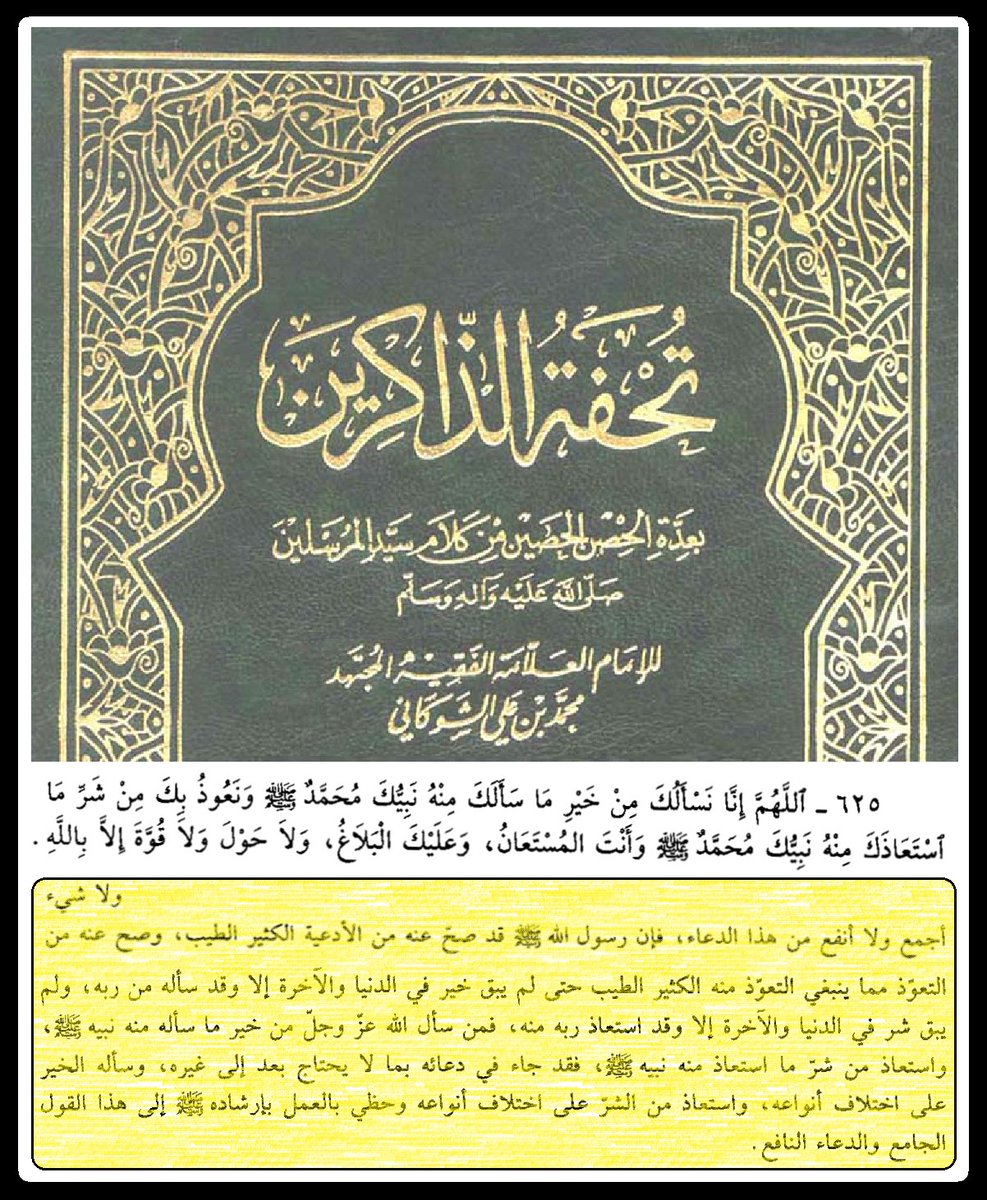 تُحْفَةُ الذَّاكِرِين
بعدَّةِ الحِصْنِ الحَصِيْنِ مِنْ كَلَامِ سَيِّدِ المُرْسَلِيْنَ
صَلَّى اللَّهُ عَلَيْهِ وَآلِهِ وَسَلَّم
للإمَامِ العَلَّامَة الفَقِيْهِ المُجْتَهِد
مُحَمَّد بْن عَلِيّ الشَّوكَانِي
٦٢٥ ـ ٱللَّهُمَّ إِنَّا نَسْأَلُكَ مِنْ خَيْرِ مَا سَأَلَكَ مِنْهُ نَبِيُّكَ مُحَمَّدٌ ﷺ وَنَعُوذُ بِكَ مِنْ شَرِّ مَا
ٱسْتَعَاذَكَ مِنْهُ نَبِيُّكَ مُحَمَّدٌ ﷺ وَأَنْتَ المُسْتَعَانُ، وَعَلَيْكَ الْبَلَاغُ، وَلاَ حَوْلَ وَلاَ قُوَّةَ إِلاَّ بِاللَّهِ.
ولا شيء
أجمع ولا أنفع من هذا الدعاء، فإن رسول الله ﷺ قد صحّ عنه من الأدعية الكثير الطيب، وصح عنه من
التعوّذ مما ينبغي التعوّذ منه الكثير الطيب حتى لم يبق خير في الدنيا والآخرة إلا وقد سأله من ربه، ولم
يبق شر في الدنيا والآخرة إلا وقد استعاذ ربه منه، فمن سأل الله عزّ وجلّ من خير ما سأله منه نبيه ﷺ،
واستعاذ من شرّ ما استعاذ منه نبيه ﷺ، فقد جاء في دعائه بما لا يحتاج بعد إلى غيره، وسأله الخير
على اختلاف أنواعه، واستعاذ من الشرّ على اختلاف أنواعه وحظي بالعمل بإرشاده ﷺ إلى هذا القول
الجامع والدعاء النافع.